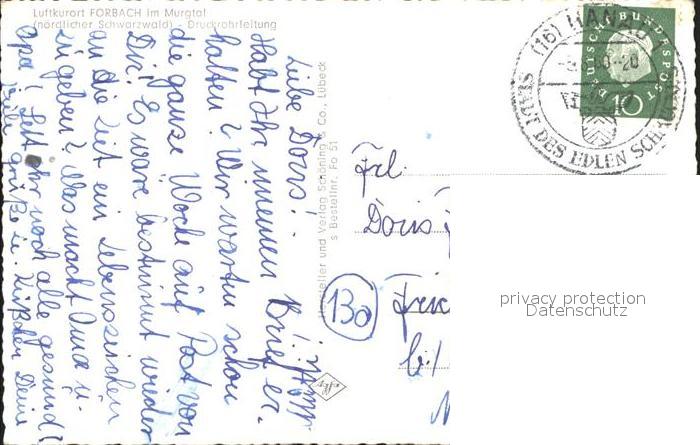 Luftkurort FORBACH im Murgtal
(nördlicher Schwarzwald) - Druckrohrleitung
Liebe Doris!
Habt Ihr meinen Brief er.
halten? Wir warten schon
die ganze Woche auf Post von
Dir. Es wäre bestimmt wieder
an die Zeit ein Lebenszeichen
zu geben? Was macht Oma u.
Opa? Seit Ihr noch alle gesund?
Viele Grüße u. Küßchen Deine
Hersteller und Verlag Schöning & Co., Lübeck
s Bestellnr. Fo 51
(16) HANAU
-20
STADT DES EDLEN SCHMUCKES
DEUTSCHE BUNDESPOST
10
Frl.
Doris
13b
b./
privacy protection
Datenschutz